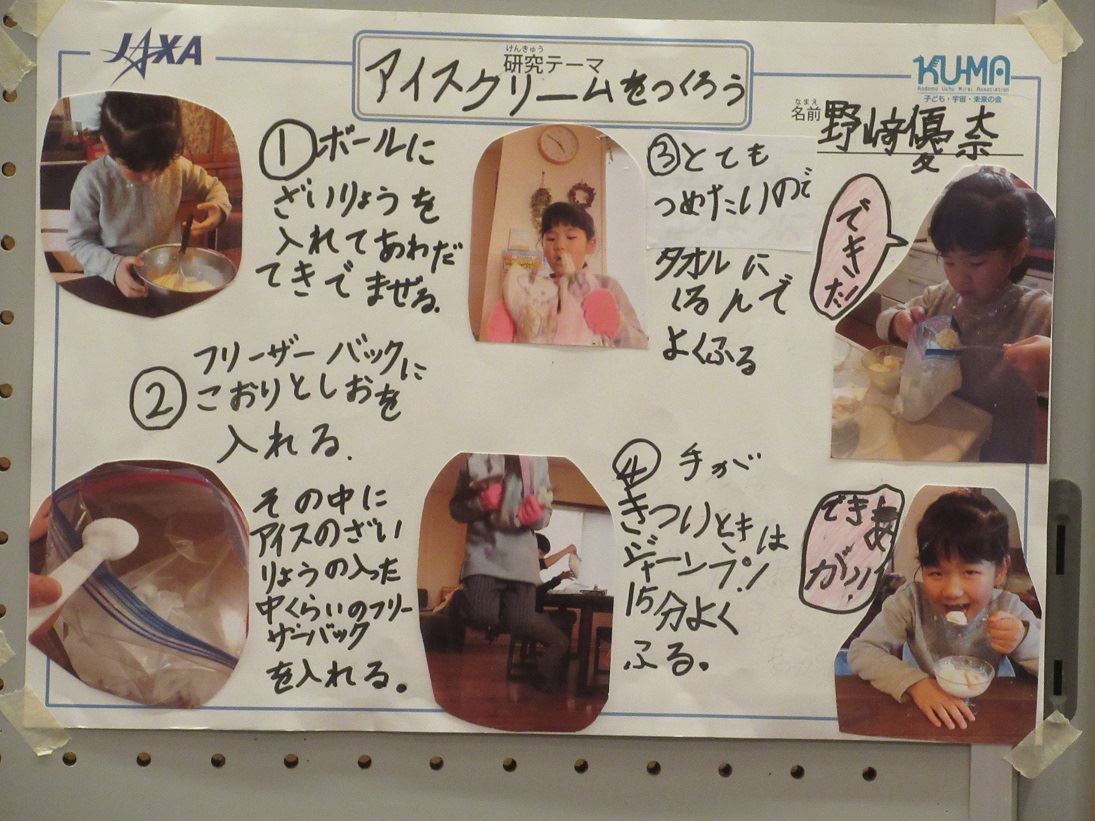 JAXA
けんきゅう
研究テーマ
アイスクリームをつくろう
KU-MA
Kodomo Uchu Mirai Association
子ども・宇宙・未来の会
なまえ
名前
野崎優奈
①ボールに
ざいりょうを
入れてあわだ
てきでまぜる。
②フリーザーバックに
こおりとしおを
入れる.
その中に
アイスのざい
りょうの入った
中くらいのフリー
ザーバック
を入れる。
③とても
つめたいので
タオルに
くるんで
よくふる
④手が
きついときは
ジャーンプ!
15分よく
ふる。
できた!
できあ
がり!